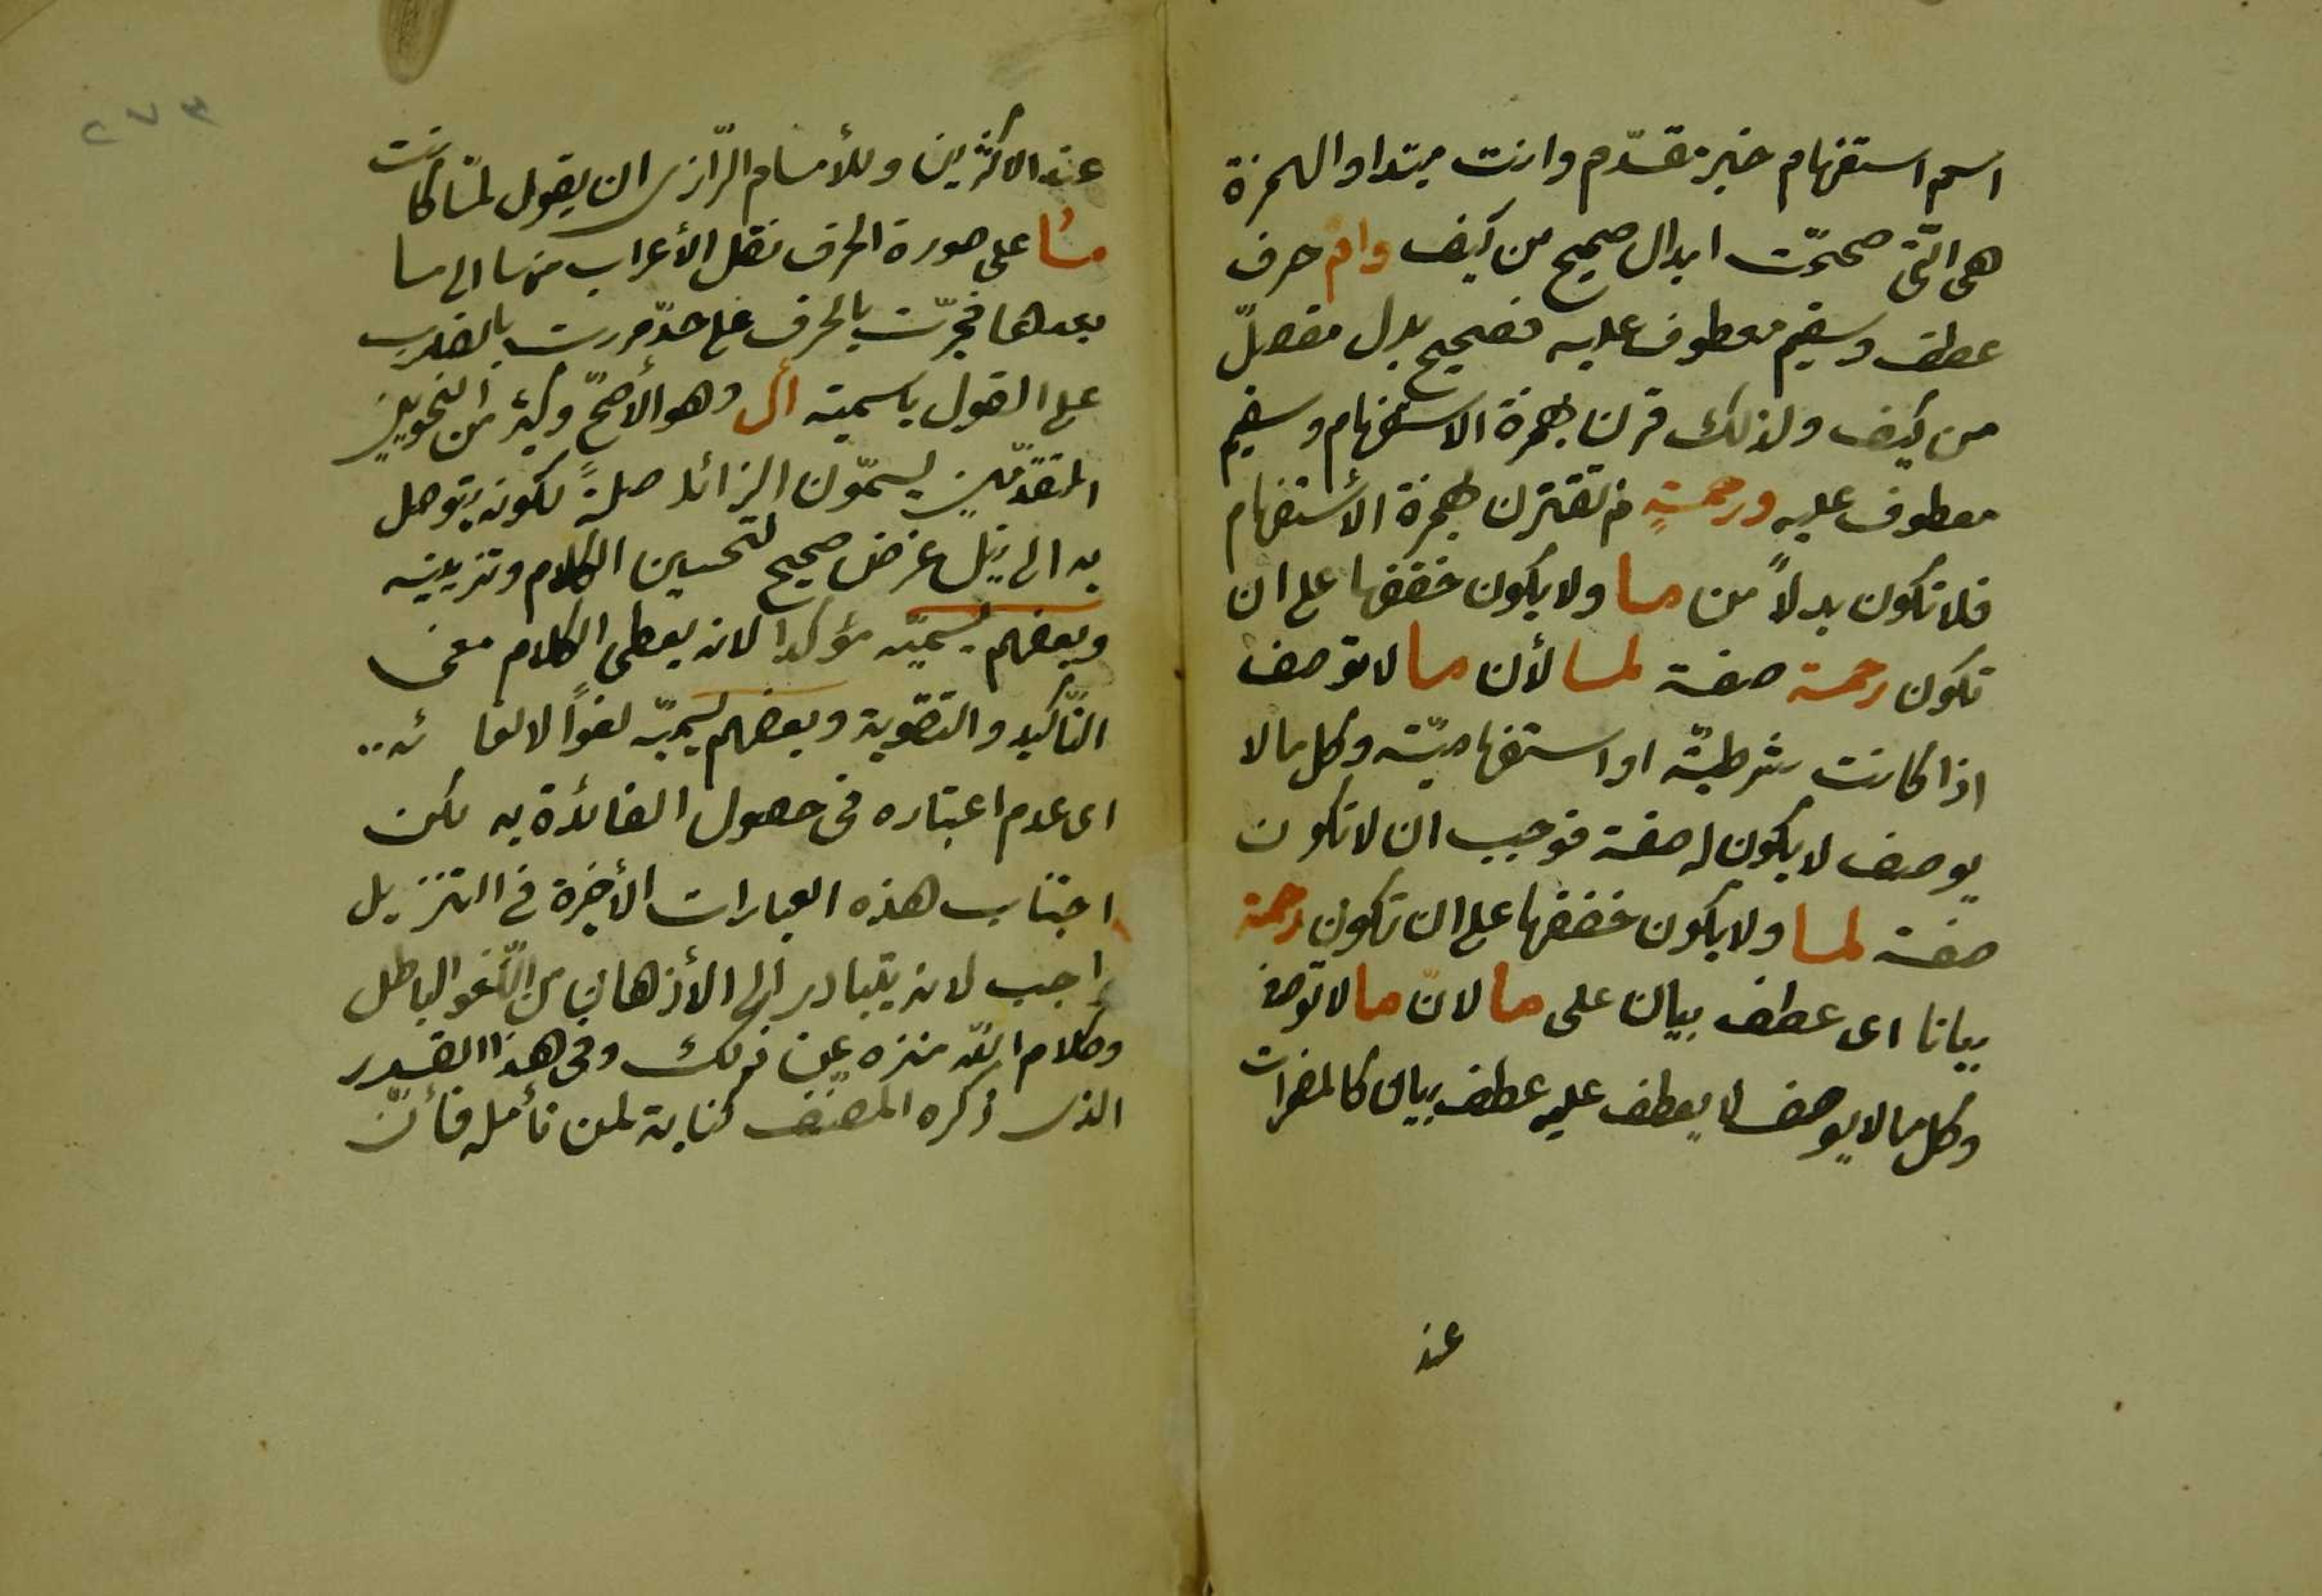 اسم استفهام خبر مقدّم وانت مبتدا والهمزة
هى الّتى صحّحت ابدال صحيح من كيف وام حرف
عطف وسقيم معطوف عليه فصحيح بدل مفصّل
من كيف ولذلك قرن بهمزة الاستفهام وسقيم
معطوف عليه ورحمةٍ لم تقترن بهمزة الأستفهام
فلا تكون بدلاً من ما ولا يكون خفضها على ان
تكون رحمة صفة لما لأن ما لا توصف
اذا كانت شرطيّة او استفهاميّة وكل ما لا
يوصف لا يكون له صفة فوجب ان لا تكون
صفة لما ولا يكون خفضها على ان تكون رحمة
بيانا اى عطف بيان على ما لانّ ما لا توصف
وكل ما لا يوصف لا يعطف عليه عطف بيان كالمضمرات
عند
٢٧٣
عند الاكثرين وللأمام الرّازى ان يقول لمّا كانت
ما على صورة الحرف نقل الأعراب منها الى ما
بعدها فجرّت بالحرف على حدّ مررت بالضارب
على القول باسمية أل وهو الأصحّ وكثير من النحويين
المتقدّمين يسمّون الزائد صلةً لكونه يتوصل
به الى نيل غرض صحيح لتحسين الكلام وتزيينه
وبعضهم يسمّيه مؤكدا لانه يعطى الكلام معنى
التّأكيد والتقوية وبعضهم يسميّه لغواً لالغا ئه ..
اى عدم اعتباره فى حصول الفائدة به لكن
اجتناب هذه العبارات الأخيرة فى التنزيل
واجب لانه يتبادر الى الأذهان من اللّغو الباطل
وكلام اللّه منزه عن ذلك وفى هذا القدر
الذى ذكره المصنّف كناية لمن تأمله فأنّ